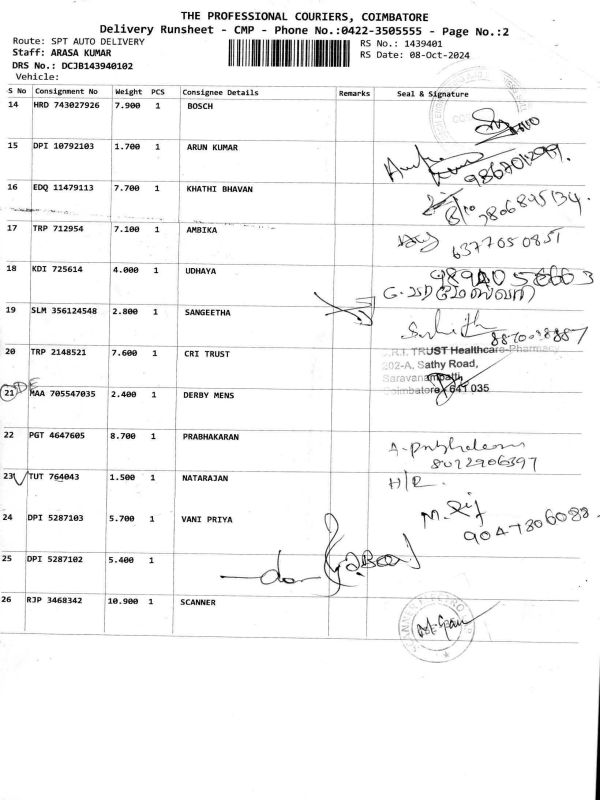 THE PROFESSIONAL COURIERS, COIMBATORE
Delivery Runsheet - CMP - Phone No.:0422-3505555 - Page No.:2
Route: SPT AUTO DELIVERY RS No.: 1439401
Staff: ARASA KUMAR RS Date: 08-Oct-2024
DRS No.: DCJB143940102
Vehicle:
S No Consignment No Weight PCS Consignee Details Remarks Seal & Signature
14 HRD 743027926 7.900 1 BOSCH
15 DPI 10792103 1.700 1 ARUN KUMAR
16 EDQ 11479113 7.700 1 KHATHI BHAVAN
17 TRP 712954 7.100 1 AMBIKA
6377050851
18 KDI 725614 4.000 1 UDHAYA
19 SLM 356124548 2.800 1 SANGEETHA
20 TRP 2148521 7.600 1 CRI TRUST
C.R.I. TRUST Healthcare-Pharmacy
202-A, Sathy Road,
Saravanampatti,
Coimbatore - 641 035
21 MAA 705547035 2.400 1 DERBY MENS
22 PGT 4647605 8.700 1 PRABHAKARAN
8022906397
23 TUT 764043 1.500 1 NATARAJAN
H/R.
24 DPI 5287103 5.700 1 VANI PRIYA
9047806088
25 DPI 5287102 5.400 1
26 RJP 3468342 10.900 1 SCANNER